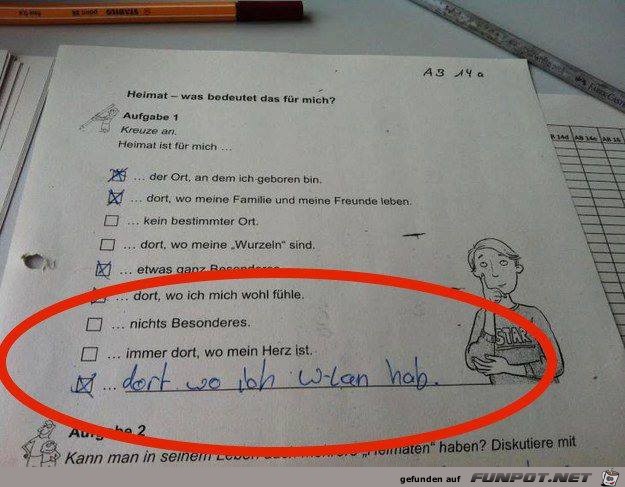 STABILO point 88
AB 14a
Heimat – was bedeutet das für mich?
Aufgabe 1
Kreuze an.
Heimat ist für mich ...
... der Ort, an dem ich geboren bin.
... dort, wo meine Familie und meine Freunde leben.
... kein bestimmter Ort.
... dort, wo meine „Wurzeln“ sind.
... etwas ganz Besonderes.
... dort, wo ich mich wohl fühle.
... nichts Besonderes.
... immer dort, wo mein Herz ist.
... dort wo ich w-lan hab.
STAR
Aufgabe 2
Kann man in seinem Leben auch mehrere „Heimaten“ haben? Diskutiere mit
14d AB 14e AB 15
gefunden auf FUNPOT.NET